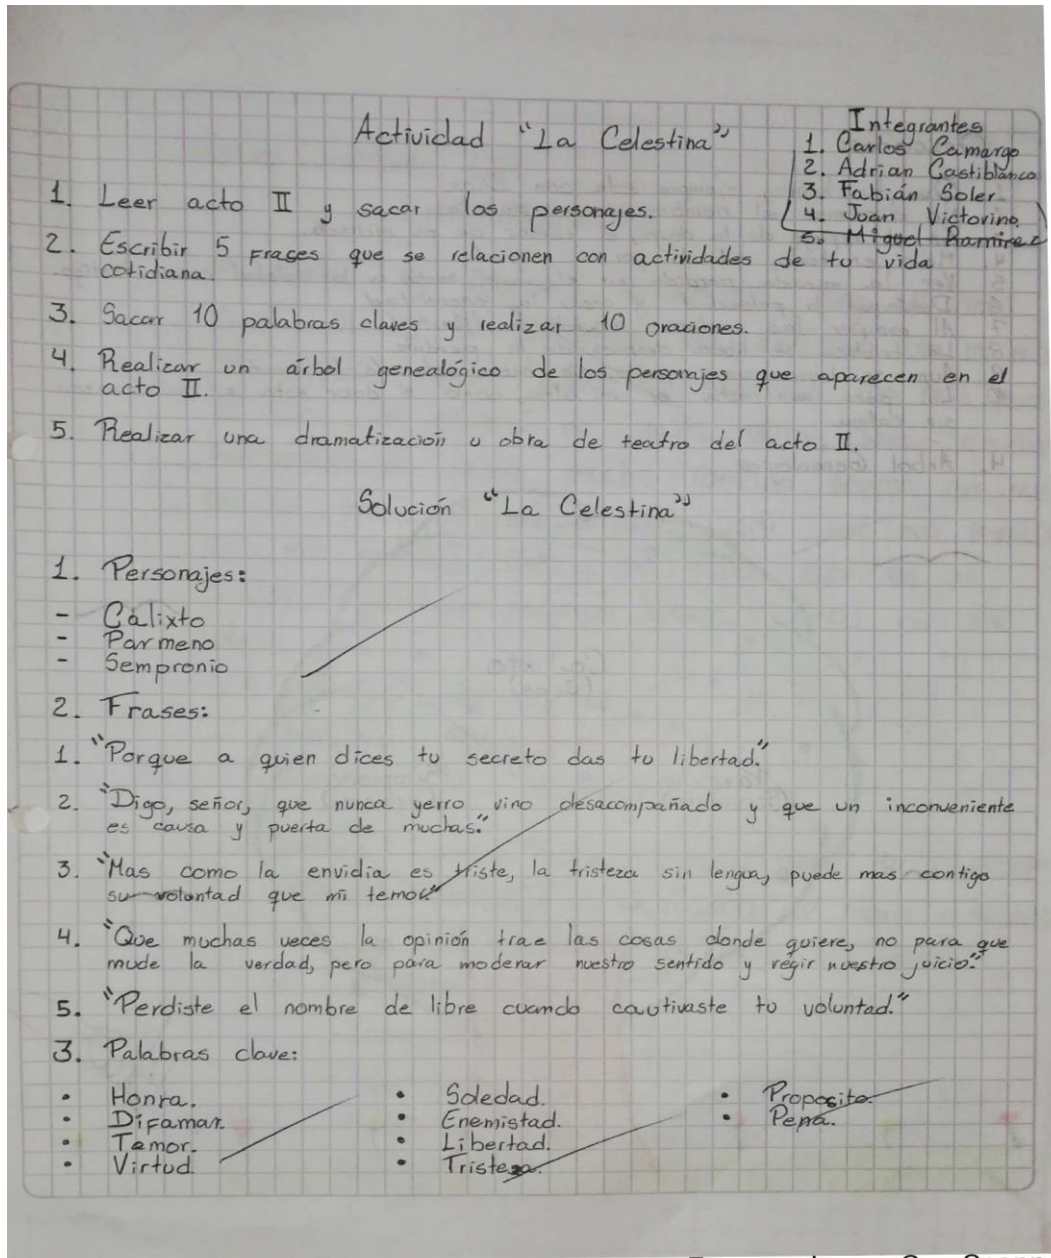 Actividad "La Celestina"
Integrantes
1. Carlos Camargo
2. Adrian Castiblanco
3. Fabián Soler
4. Joan Victorino
5. Miguel Ramirez
1. Leer acto II y sacar los personajes.
2. Escribir 5 Frases que se relacionen con actividades de tu vida
cotidiana.
3. Sacar 10 palabras claves y realizar 10 oraciones.
4. Realizar un árbol genealógico de los personajes que aparecen en el
acto II.
5. Realizar una dramatización u obra de teatro del acto II.
Solución "La Celestina"
1. Personajes:
- Calixto
- Parmeno
- Sempronio
2. Frases:
1. "Porque a quien dices tu secreto das tu libertad."
2. "Digo, señor, que nunca yerro vino desacompañado y que un inconveniente
es causa y puerta de muchas."
3. "Mas como la envidia es triste, la tristeza sin lengua, puede mas contigo
su voluntad que mi temor"
4. "Que muchas veces la opinión trae las cosas donde quiere, no para que
mude la verdad, pero para moderar nuestro sentido y regir nuestro juicio."
5. "Perdiste el nombre de libre cuando cautivaste tu voluntad."
3. Palabras clave:
• Honra.
• Difamar.
• Temor.
• Virtud.
• Soledad.
• Enemistad.
• Libertad.
• Tristeza.
• Proposito.
• Pena.